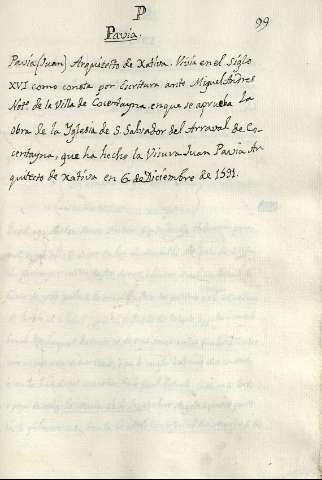 P
99
Pavia.
Pavia (Juan) Arquitecto de Xativa. Vivia en el Siglo
XVI como consta por Escritura ante Miguel Andres
Notº de la Villa de Cocentayna, en que se aprueba la
obra de la Yglesia de S. Salvador del Arraval de Co-
centayna, que ha hecho la Juan Pavia Ar-
quitecto de Xativa en 6 de Diciembre de 1591.